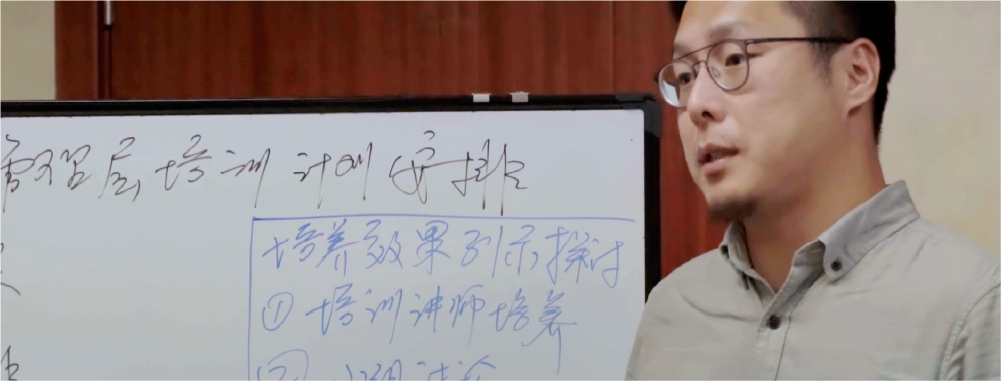 管理层培训计划安排
培养效果引示探讨
① 培训讲师培养
②